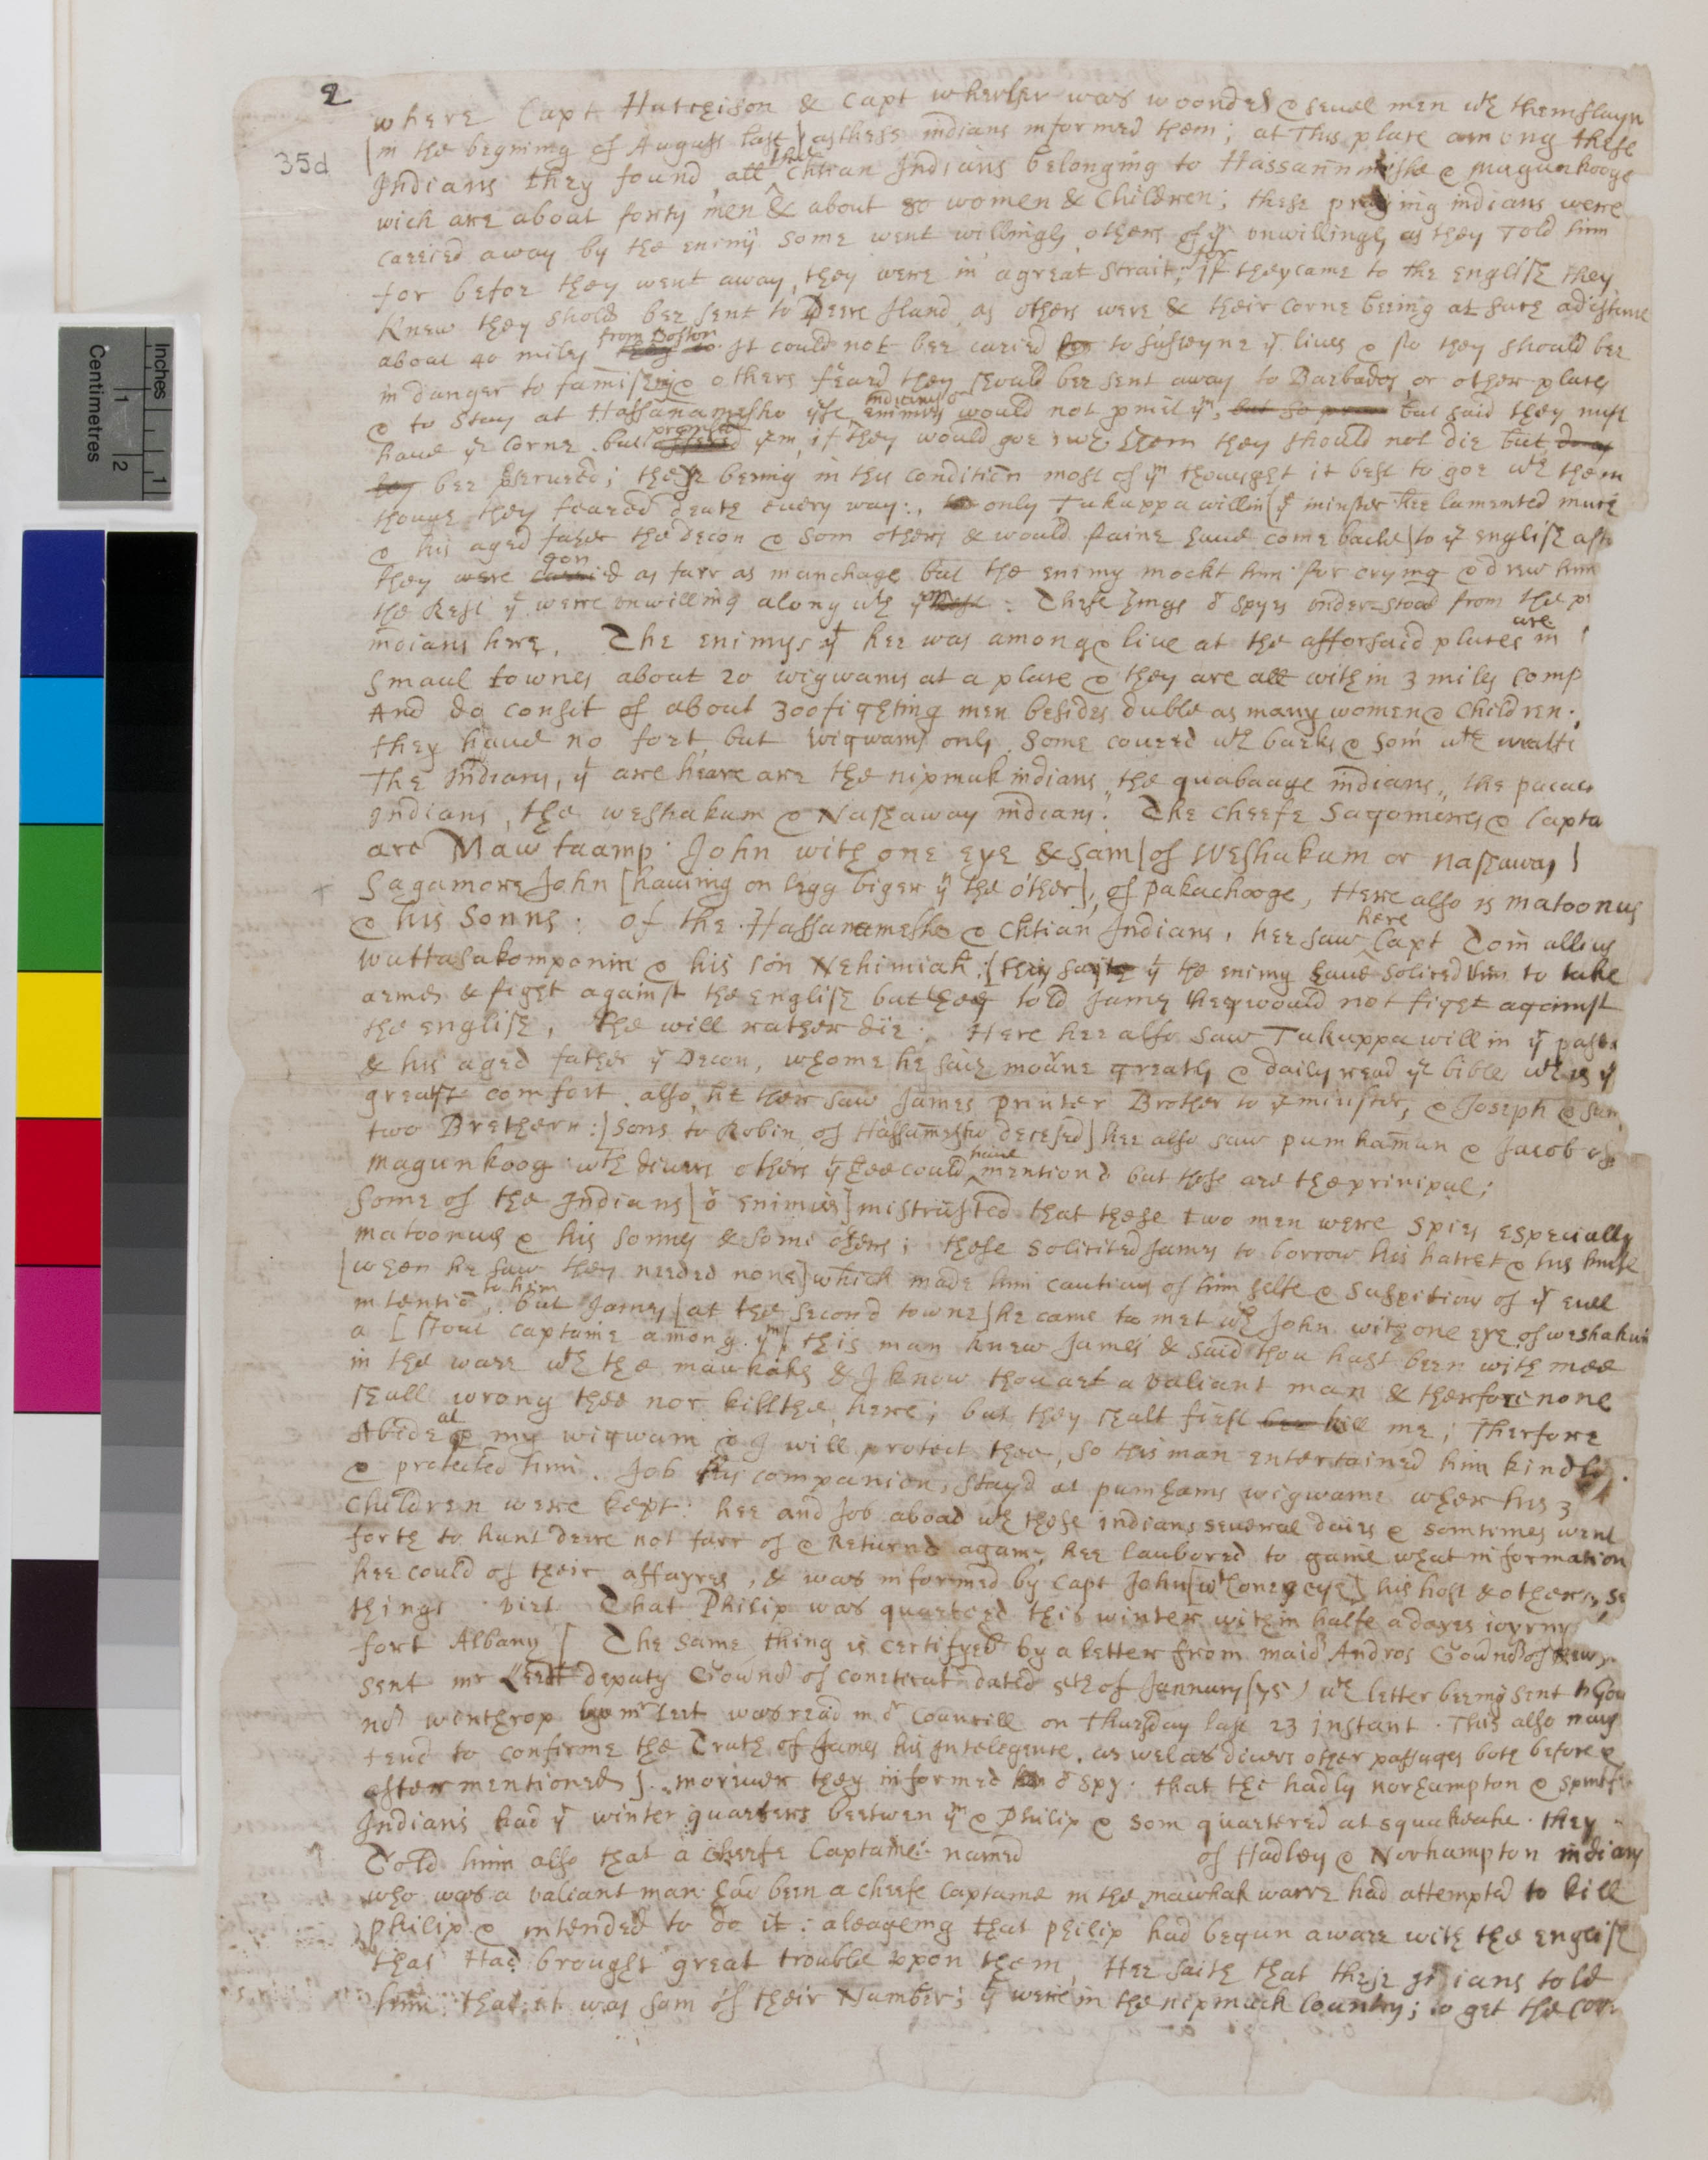 2
35d
where Capt Hutchison & Capt wheeler was woonded & seuel men wth them slayn
[in the begining of August last] as thess indians informed them; at This place among these
Indians they found all the Chtian Indians belonging to Hassanmiske & magunkooge
wich are about forty men & about 80 women & Children; these praying indians were
carried away by the enimy some went willingly others of ym unwillingly as they Told him
for befoe they went away, they were in a great strait, for if they came to the english they
knew they shold bee sent to Deere Iland, as others were & their corne beeing at such a distance
about 40 miles from Boston it could not bee caried to susteyne yr lives & so they should bee
in danger to famish; & others feard they should bee sent away to Barbados, or other places
& to stay at Hassanameshe these indians or enimies would not pmit ym, but said they must
haue ye Corne but promised ym, if they would goe wth them they should not die but
bee pserued; these being in this condition most of ym thought it best to goe wth them
though they feared death euery way: only Tukuppawillin [ye minister] hee lamented much
& his aged father the Decon & som others & would faine haue come back to ye english after
they were gon as farr as manchage but the enimy mockt him for crying & drew him
the Rest yt were unwilling along wth ym: These things or spyes understood from the
indians here. The enimys yt hee was among & liue at the afforsaid places are in
smaul townes about 20 wigwams at a place & they are all within 3 miles
And do consit of about 300 fighting men besides duble as many women & children:
they haue no fort, but wigwams only, some couered wth barks & som wth
The Indians, yt are heare are the nipmuk indians, the quabaage indians, the
Indians, the weshakum & Nashaway indians: The cheefe Sagomores &
are Mawtaamp: John with one eye & Sam [of Weshakum or nashaway]
+ Sagamore John [hauing on legg biger yn the other], of pakachooge, Here also is matoonus
& his sonns: of the Hassanameshe & Chtian Indians, hee saw here Capt Tom allias
wuttasakomponin & his son Nehimiah: [they say yt the enimy haue solicited them to take
armes & fight against the english but they told James they would not fight against
the english, the will rather die: Here hee also saw Tukuppawillin ye
& his aged father ye Decon, whome he saith mourne greatly & daily read ye bible wch is yr
greatst comfort. also, he ther saw James printer Brother to ye minister, & Joseph &
two Brethern: [sons to Robin of Hassameshe deceased] hee also saw pumhamun & Jacob of
magunkoog wth diuers others yt hee could haue mentiond but these are the prinipul;
Some of the Indians [or enimies] mistrusted that these two men were spies especially
matoonus & his sonns & some others; these solicited James to borrow his hatchet & his knife
[when he saw they needed none] which made him cautious of him selfe & suspitious of yr euill
intentio, to him. but James [at the second towne] he came to met wth John with one eye of weshakum
a [stout captaine among ym] this man knew James & said thou hast been with mee
in the ware wth the mauhaks & I know thou art a valiant man & therfore none
shall wrong thee nor kill thee here; but they shall first kill me; Therfore
Abide at my wigwam & I will protect thee, so this man entertained him kindly
& protected him. Job his companion, stayd at pumhams wigwame wher his 3
children were kept: hee and Job aboad wth these indians several daies & somtimes went
forth to hunt deere not farr of & Returned again, hee laubored to gaine what information
hee could of their affayres, & was informed by Capt John [wth one eye] his host & others,
things vizt That Philip was quartered this winter within halfe a dayes iourny
fort Albany [The same thing is certifyed by a letter from maior Andros Gouernr of New
sent mr Leet deputy Gouernr of conecticut dated 5th of January (75) wch letter beeing sent to Gou
nr winthrop by mr Leet was read in or Councill on Thursday last 23 instant. This also may
tend to confirme the Truth of James his Intelegence, as well as diuers other passages both before &
after mentioned]. moreuer they informed or spy: that the hadly norhampton &
Indians had yr winter quarters beetwen ym & Philip & som quartered at squakeake. they
Told him also that a cheefe Captaine named of Hadley & Norhampton indians
who was a valiant man had been a cheefe captaine in the mawhak warre had attempted to kill
Philip & intended to do it: aleageing that philip had begun a warr with the english
that Had brought great trouble upon them. Hee saith that these indians told
him, that it was som of their Number; yt were in the nipmuck Country; to get the
Inches
Centimetres
1
2
1